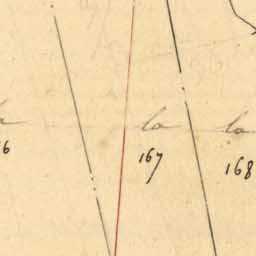 la la
167 168